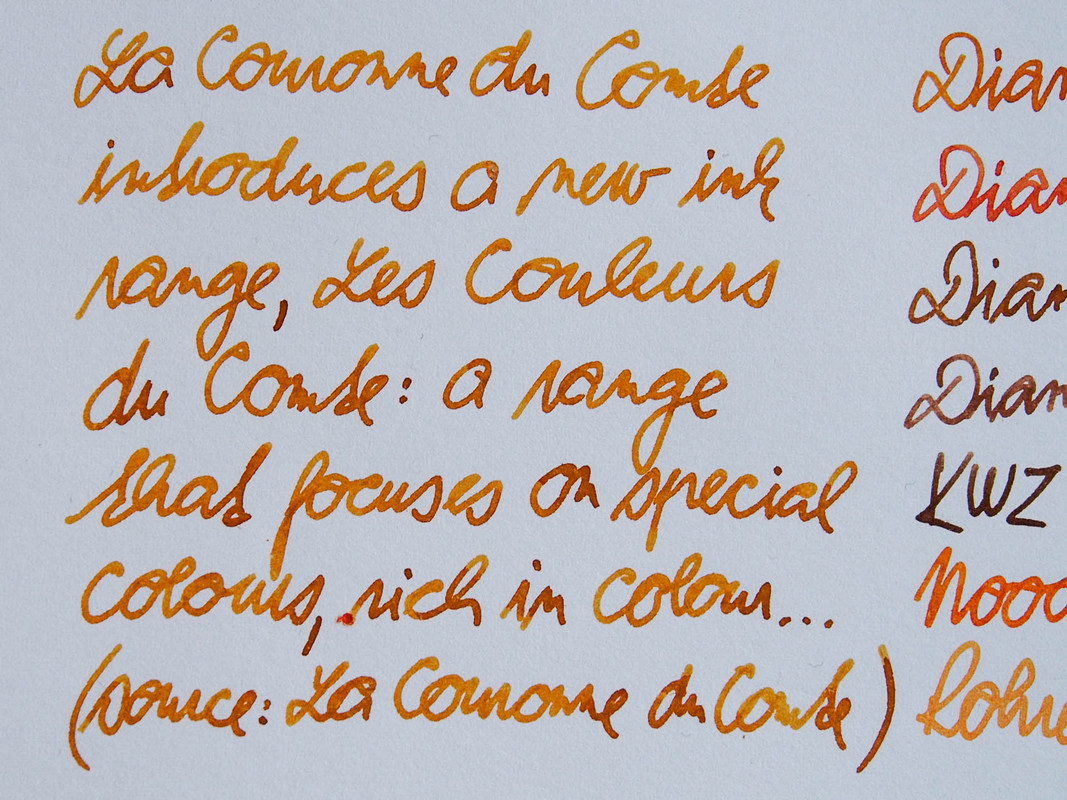 La Couronne du Comte
introduces a new ink
range, Les Couleurs
du Comte: a range
that focuses on special
colours, rich in colour...
(source: La Couronne du Comte)
Diam
Diam
Diam
Diam
KWZ
Nood
Rohre